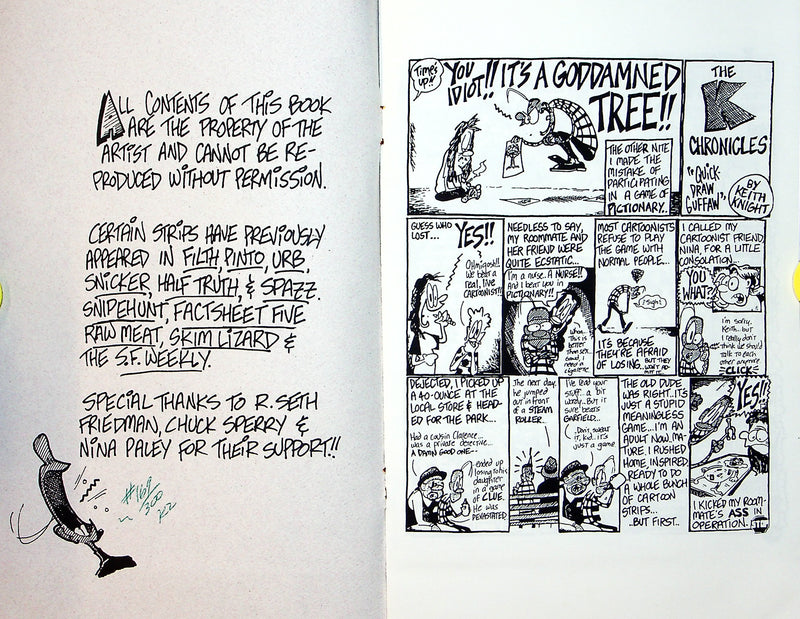 ALL CONTENTS OF THIS BOOK
ARE THE PROPERTY OF THE
ARTIST AND CANNOT BE RE-
PRODUCED WITHOUT PERMISSION.
CERTAIN STRIPS HAVE PREVIOUSLY
APPEARED IN FILTH, PINTO, URB,
SNICKER, HALF TRUTH, & SPAZZ.
SNIPEHUNT, FACTSHEET FIVE
RAW MEAT, SKIM LIZARD &
THE S.F. WEEKLY.
SPECIAL THANKS TO R. SETH
FRIEDMAN, CHUCK SPERRY &
NINA PALEY FOR THEIR SUPPORT!!
TIME'S
UP!!
YOU
IDIOT!! IT'S A GODDAMNED
TREE!!
THE OTHER NITE
I MADE THE
MISTAKE OF
PARTICIPATING
IN A GAME OF
PICTIONARY..
THE
K
CHRONICLES
"QUICK-
DRAW
GUFFAW"
BY
KEITH
KNIGHT
GUESS WHO
LOST...
YES!!
We beat a
real, live
CARTOONIST!!
NEEDLESS TO SAY,
MY ROOMMATE AND
HER FRIEND WERE
QUITE ECSTATIC...
I'm a nurse. A NURSE!!
And I beat you in
PICTIONARY!!
MOST CARTOONISTS
REFUSE TO PLAY
THE GAME WITH
NORMAL PEOPLE...
sigh!
IT'S BECAUSE
THEY'RE AFRAID
OF LOSING..
I CALLED MY
CARTOONIST FRIEND,
NINA, FOR A LITTLE
CONSOLATION..
YOU
WHAT?!
I'm sorry,
Keith.. but
I really don't
think we should
talk to each
other anymore.
CLICK
DEJECTED, I PICKED UP
A 40-OUNCE AT THE
LOCAL STORE & HEAD-
ED FOR THE PARK...
Had a cousin Clarence...
was a private detective...
A DAMN GOOD ONE--
ended up
losing to his
daughter
in a game
of CLUE.
He was
DEVASTATED
The next day,
he jumped
out in front
of a STEAM
ROLLER.
I've read your
stuff.. a bit
wordy.. But it
sure beats
GARFIELD...
Don't sweat
it, kid.. it's
just a game
THE OLD DUDE
WAS RIGHT..IT'S
JUST A STUPID
MEANINGLESS
GAME...I'M AN
ADULT NOW. MA-
TURE. I RUSHED
HOME, INSPIRED.
READY TO DO
A WHOLE BUNCH
OF CARTOON
STRIPS...
..BUT FIRST..
YES!!
I KICKED MY ROOM-
MATE'S ASS IN
OPERATION.